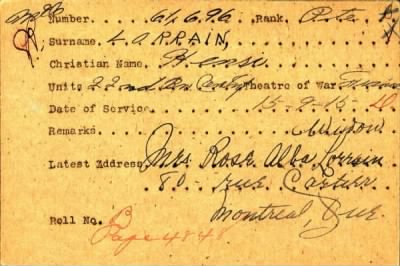 Number. 61,696 Rank. Pte
Surname. LARRAIN,
Christian Name.
Unit: 22nd Theatre of War.
Date of Service. 15-9-15
Remarks
Latest Address. Mrs. Rose Alba Lorrain
80 - rue Cartier
Montreal, Que
Roll No. Page 4848